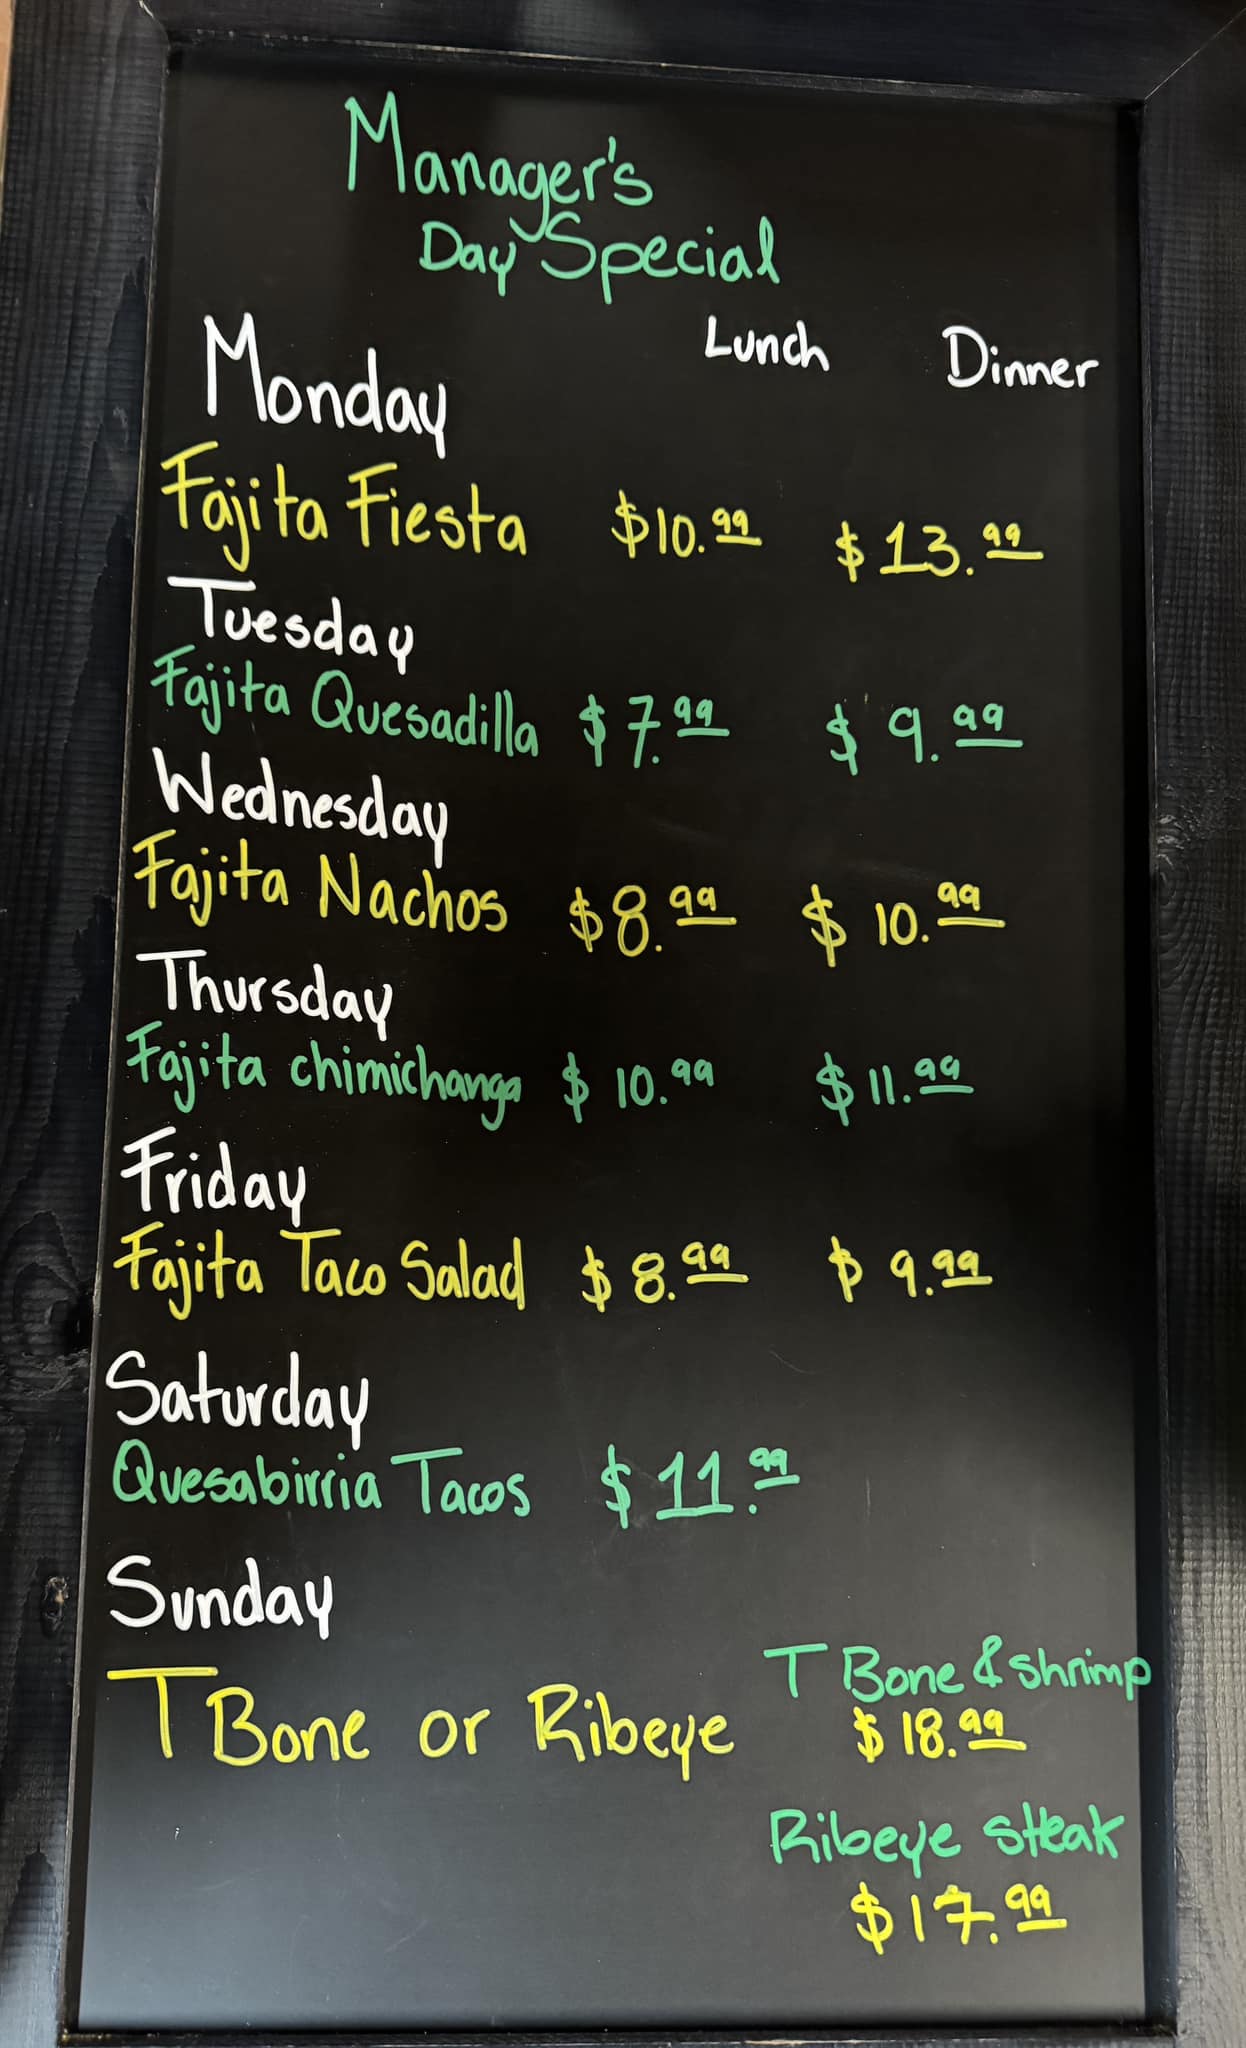 Manager's
Day Special
Lunch Dinner
Monday
Fajita Fiesta $10.99 $13.99
Tuesday
Fajita Quesadilla $7.99 $9.99
Wednesday
Fajita Nachos $8.99 $10.99
Thursday
Fajita chimichanga $10.99 $11.99
Friday
Fajita Taco Salad $8.99 $9.99
Saturday
Quesabirria Tacos $11.99
Sunday
T Bone or Ribeye
T Bone & shrimp
$18.99
Ribeye steak
$17.99